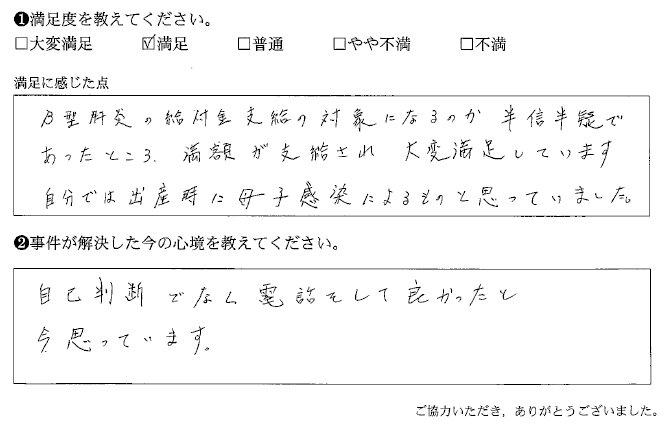 ❶満足度を教えてください。
□大変満足 ☑満足 □普通 □やや不満 □不満
満足に感じた点
B型肝炎の給付金支給の対象になるのか 半信半疑で
あったところ、満額が支給され 大変満足しています
自分では出産時に母子感染によるものと思っていました。
❷事件が解決した今の心境を教えてください。
自己判断でなく電話をして良かったと
今思っています。
ご協力いただき，ありがとうございました。